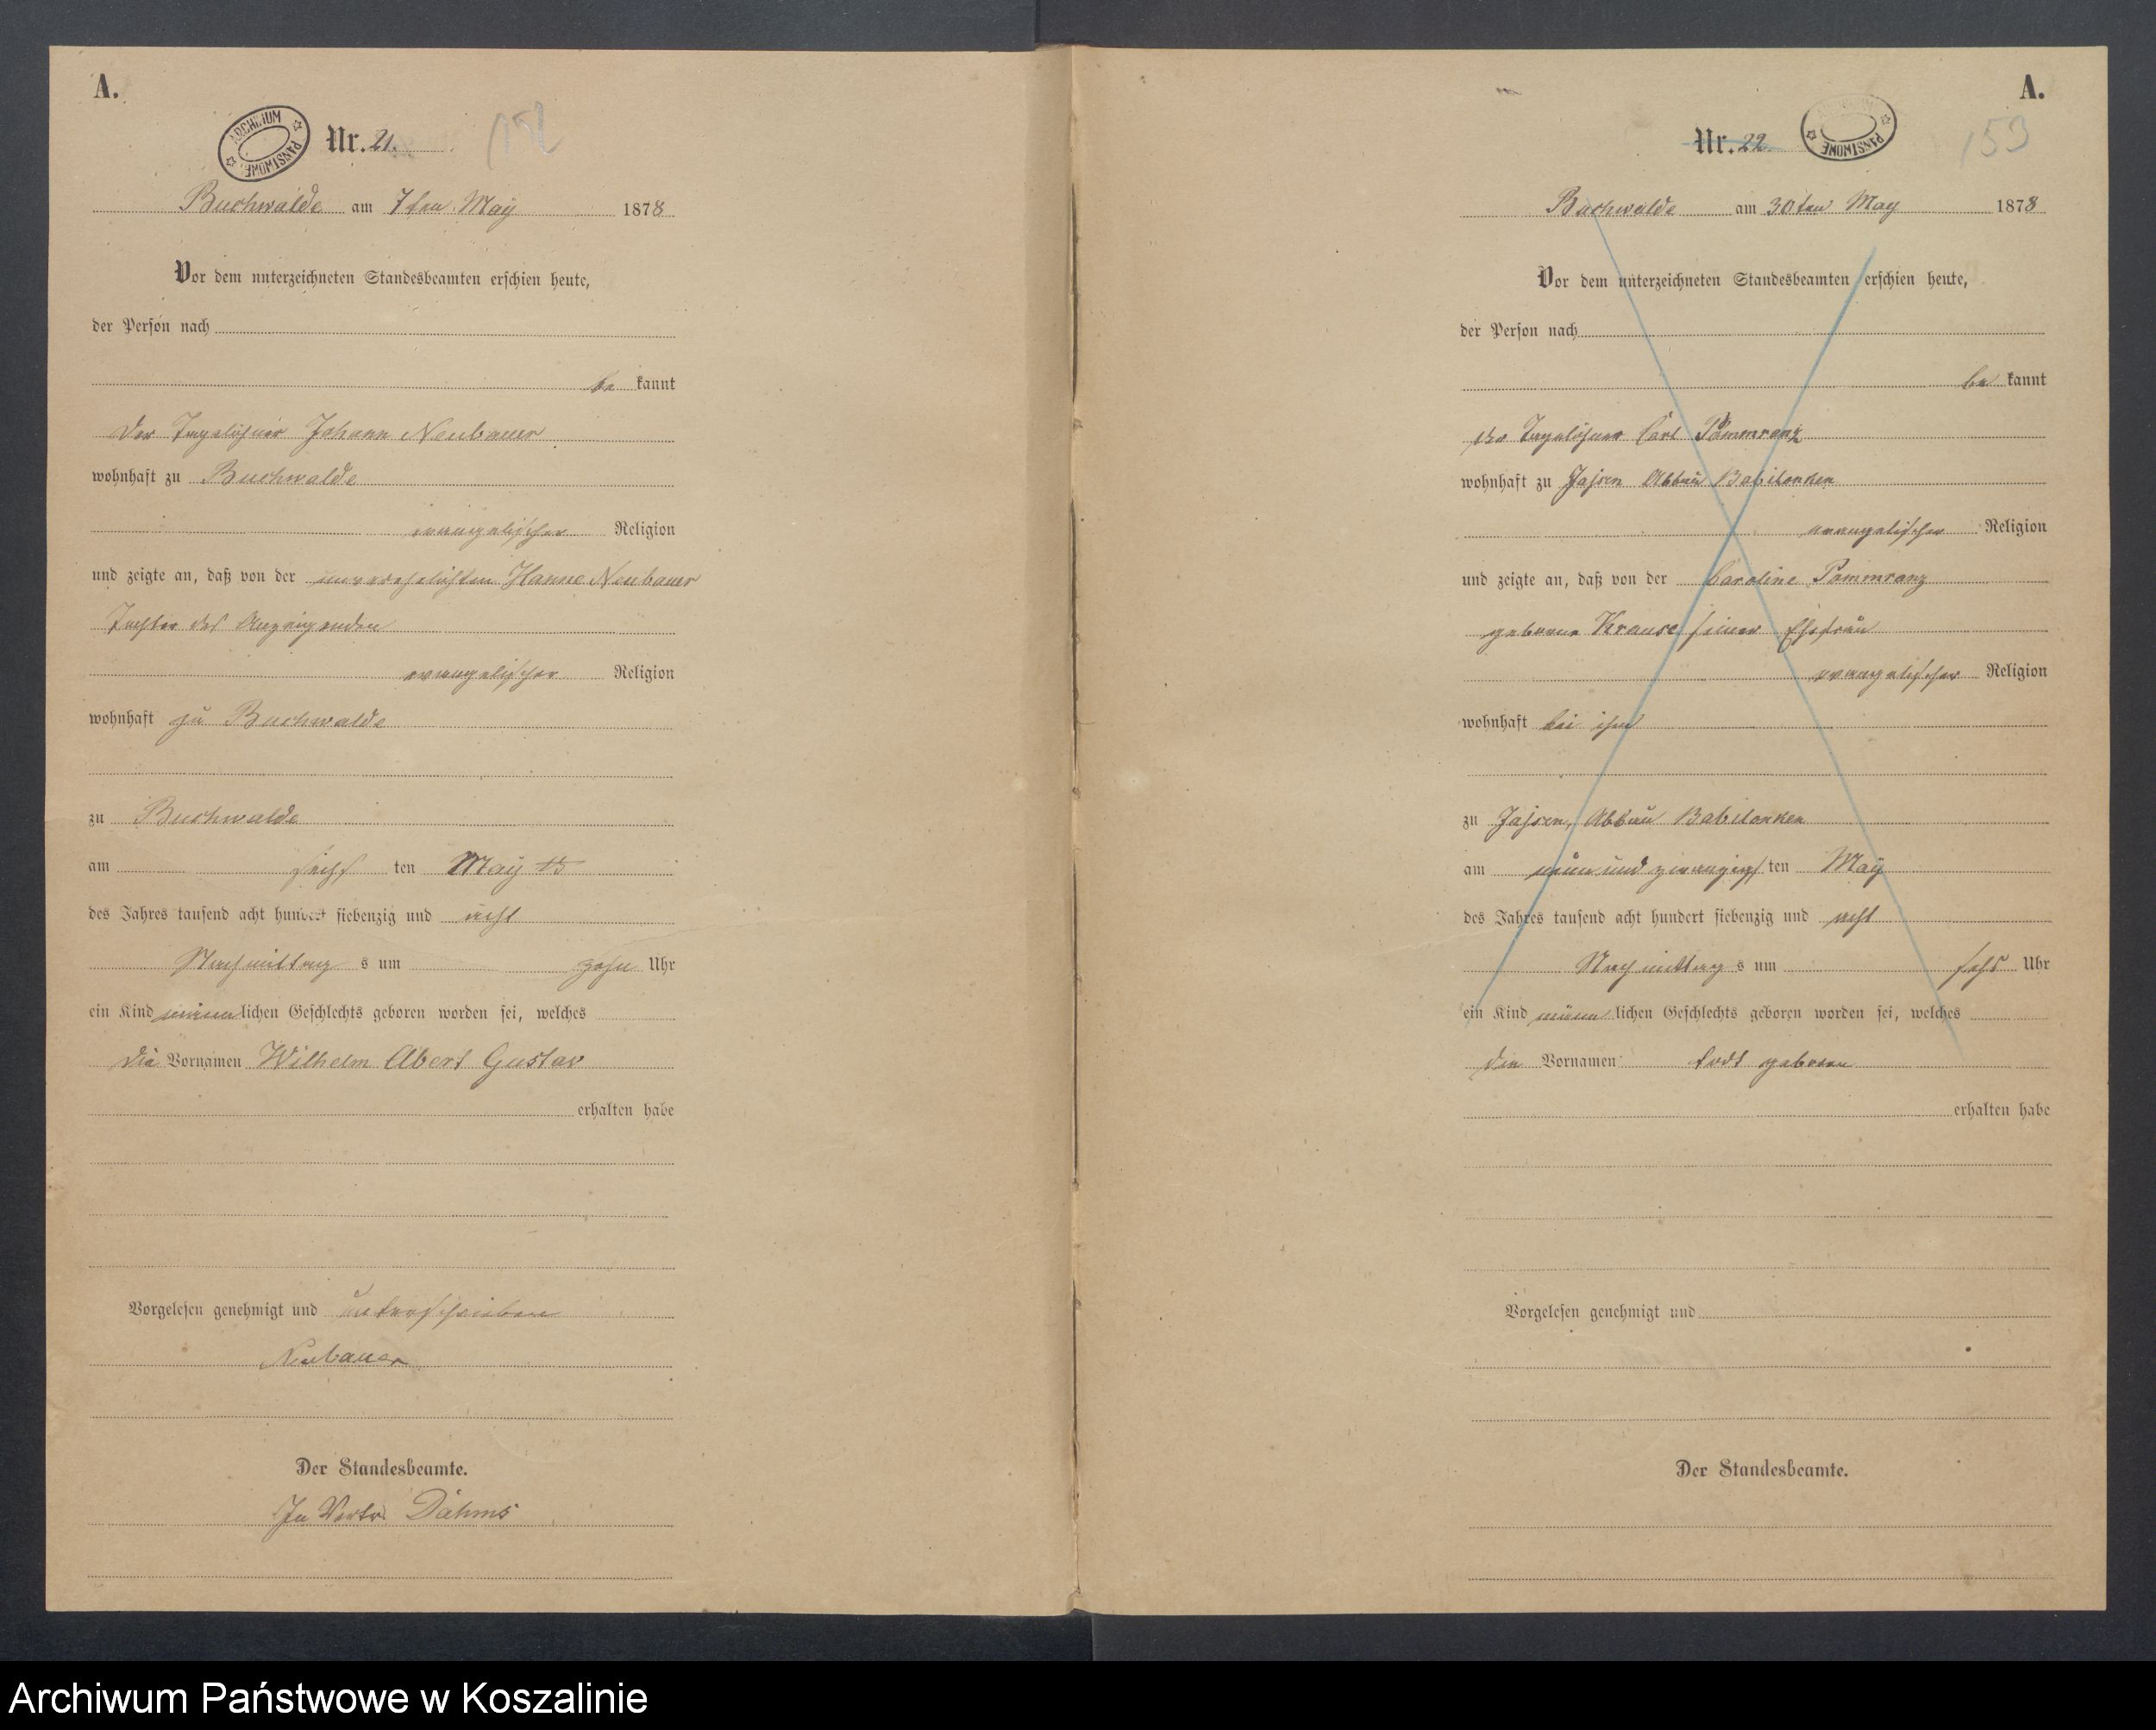 A.
ARCHIWUM PAŃSTWOWE
Nr. 21.
152
Buchwalde am 7ten May 1878
Vor dem unterzeichneten Standesbeamten erschien heute,
der Person nach
be kannt
Der Tagelöhner Johann Neubauer
wohnhaft zu Buchwalde
evangelischer Religion
und zeigte an, daß von der unverehelichten Hanne Neubauer
Tochter des Anzeigenden
evangelischer Religion
wohnhaft zu Buchwalde
zu Buchwalde
am sechs ten May
des Jahres tausend acht hundert siebenzig und acht
Nachmittag s um zehn Uhr
ein Kind männlichen Geschlechts geboren worden sei, welches
die Vornamen Wilhelm Albert Gustav
erhalten habe
Vorgelesen genehmigt und unterschrieben
Neubauer
Der Standesbeamte.
In Vertr. Dahms
A.
Nr. 22.
ARCHIWUM PAŃSTWOWE
153
Buchwalde am 30ten May 1878
Vor dem unterzeichneten Standesbeamten erschien heute,
der Person nach
be kannt
der Tagelöhner Carl Pommrenz
wohnhaft zu Jassen Abbau Babilonken
evangelischer Religion
und zeigte an, daß von der Caroline Pommranz
geborene Krause seiner Ehefrau
evangelischer Religion
wohnhaft bei ihm
zu Jassen, Abbau Babilonken
am neun und zwanzigs ten May
des Jahres tausend acht hundert siebenzig und acht
Nachmittag s um sechs Uhr
ein Kind männ lichen Geschlechts geboren worden sei, welches
den Vornamen todt geboren
erhalten habe
Vorgelesen genehmigt und
Der Standesbeamte.
Archiwum Państwowe w Koszalinie